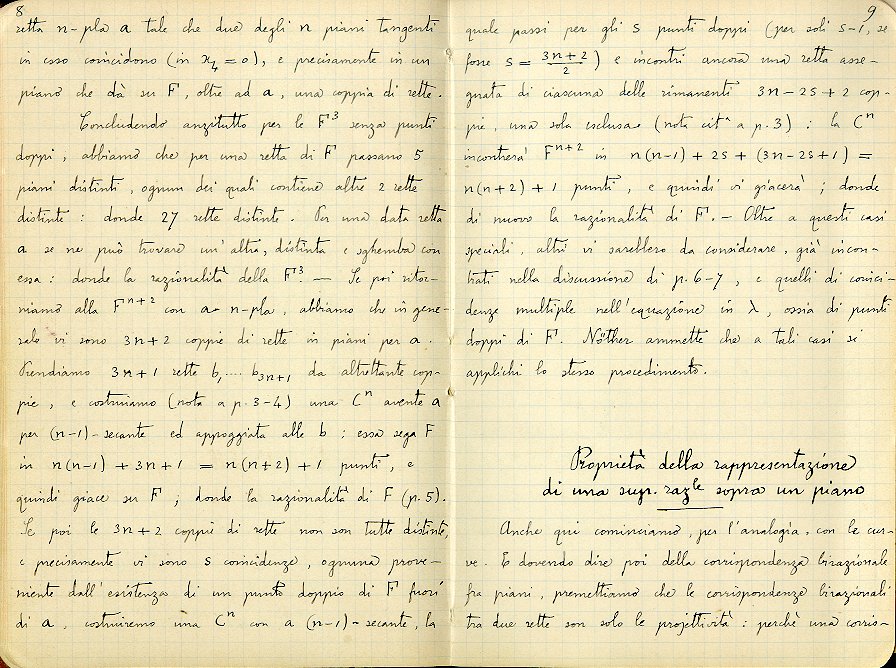 8
retta n-pla a tale che due degli n piani tangenti
in esso coincidono (in x₄=0), e precisamente in un
piano che dà su F, oltre ad a, una coppia di rette.
Concludendo anzitutto per le F³ senza punti
doppi, abbiamo che per una retta di F passano 5
piani distinti, ognun dei quali contiene altre 2 rette
distinte: donde 27 rette distinte. Per una data retta
a se ne può trovare un'altra, distinta e sghemba con
essa: donde la razionalità della F³. — Se poi ritor-
niamo alla Fⁿ⁺² con a n-pla, abbiamo che in gene-
rale vi sono 3n+2 coppie di rette in piani per a.
Prendiamo 3n+1 rette b₁.... b₃ₙ₊₁ da altrettante cop-
pie, e costruiamo (nota a p. 3-4) una Cⁿ avente a
per (n-1)-secante ed appoggiata alle b: essa sega F
in n(n-1) + 3n+1 = n(n+2)+1 punti, e
quindi giace su F; donde la razionalità di F (p. 5).
Se poi le 3n+2 coppie di rette non son tutte distinte,
e precisamente vi sono s coincidenze, ognuna prove-
niente dall'esistenza di un punto doppio di F fuori
di a, costruiremo una Cⁿ con a (n-1)-secante, la
9
quale passi per gli s punti doppi (per soli s-1, se
fosse s = (3n+2)/2) e incontri ancora una retta asse-
gnata di ciascuna delle rimanenti 3n-2s+2 cop-
pie, una sola esclusa (nota citᵃ a p. 3): la Cⁿ
incontrerà Fⁿ⁺² in n(n-1) + 2s + (3n-2s+1) =
n(n+2)+1 punti, e quindi vi giacerà; donde
di nuovo la razionalità di F. — Oltre a questi casi
speciali, altri vi sarebbero da considerare, già incon-
trati nella discussione di p. 6-7, e quelli di coinci-
denze multiple nell'equazione in λ, ossia di punti
doppi di F. Nöther ammette che a tali casi si
applichi lo stesso procedimento.
Proprietà della rappresentazione
di una sup. razˡᵉ sopra un piano
Anche qui cominciamo, per l'analogia, con le cur-
ve. E dovendo dire poi della corrispondenza birazionale
fra piani, premettiamo che le corrispondenze birazionali
tra due rette son solo le projettività: perchè una corris-